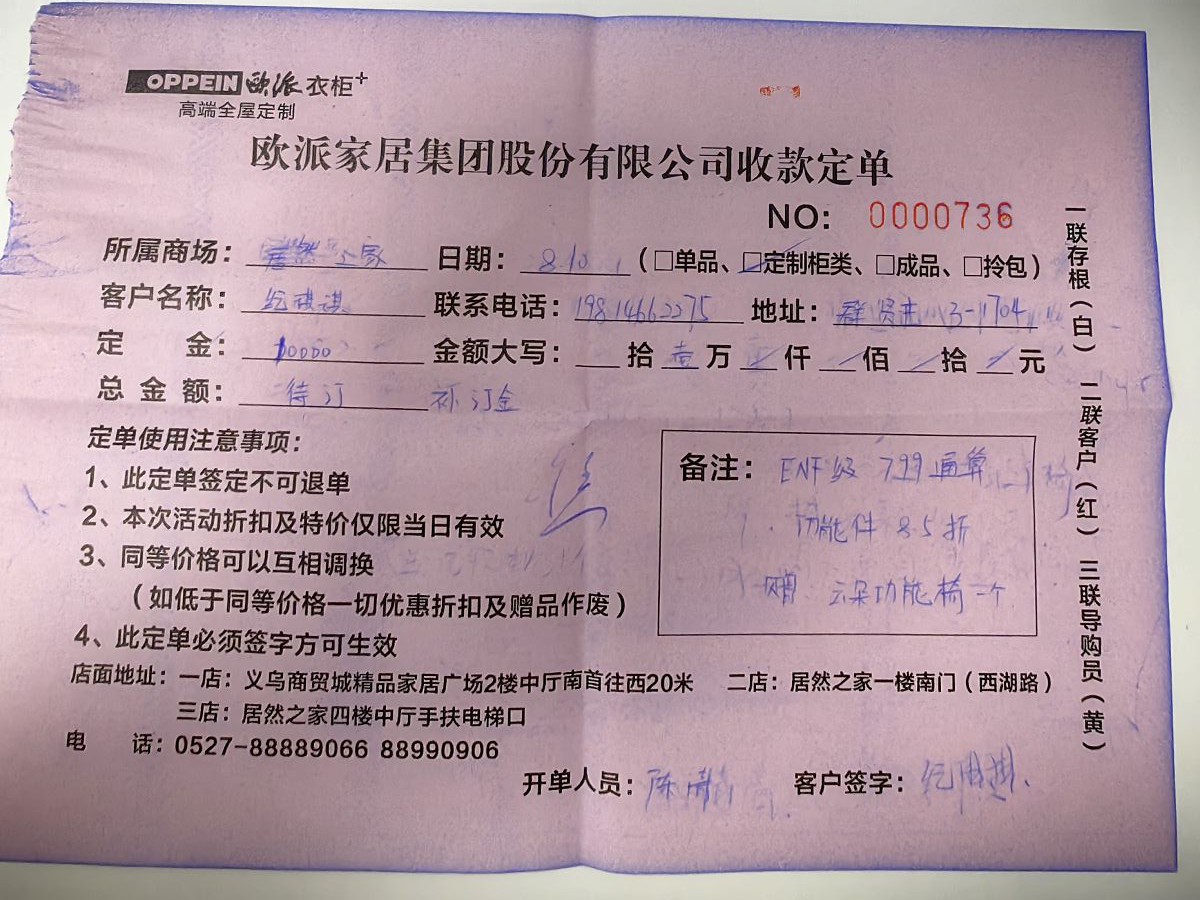 OPPEIN 欧派 衣柜+
高端全屋定制
欧派家居集团股份有限公司收款定单
NO: 0000736
所属商场: 居然之家 日期: 8.10 (□单品、□定制柜类、□成品、□拎包)
客户名称: 纪 联系电话: 19814662275 地址: 群贤 3-1704
定 金: 10000 金额大写: 拾 壹 万 仟 佰 拾 元
总金额: 待订 补订金
定单使用注意事项:
1、此定单签定不可退单
2、本次活动折扣及特价仅限当日有效
3、同等价格可以互相调换
(如低于同等价格一切优惠折扣及赠品作废)
4、此定单必须签字方可生效
备注: ENF级 799通算
功能件 8.5折
赠 云朵功能椅一个
店面地址: 一店: 义乌商贸城精品家居广场2楼中厅南首往西20米 二店: 居然之家一楼南门(西湖路)
三店: 居然之家四楼中厅手扶电梯口
电 话: 0527-88889066 88990906
开单人员: 陈 客户签字: 纪
一联存根(白) 二联客户(红) 三联导购员(黄)